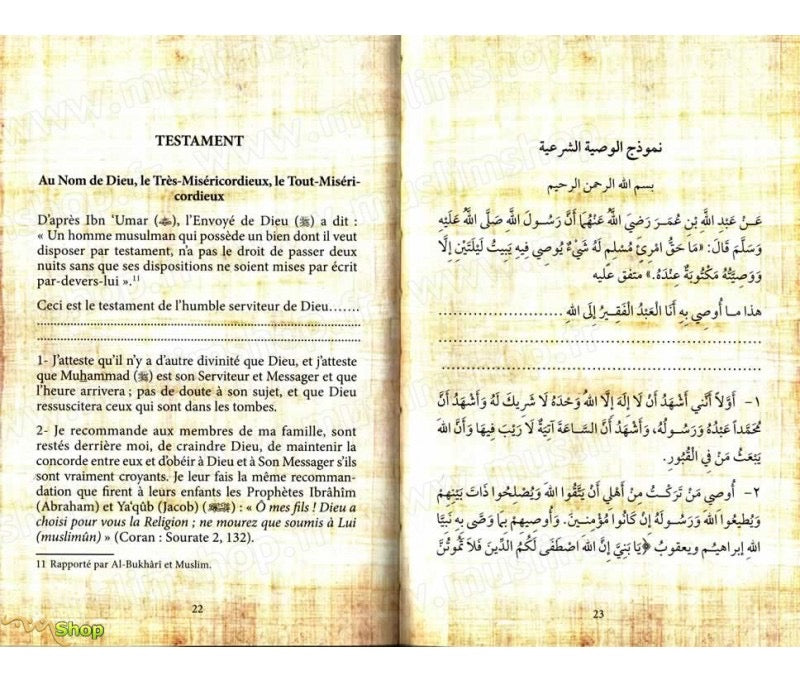 TESTAMENT
Au Nom de Dieu, le Très-Miséricordieux, le Tout-Miséri-
cordieux
D'après Ibn ‘Umar (), l'Envoyé de Dieu (ﷺ) a dit :
« Un homme musulman qui possède un bien dont il veut
disposer par testament, n'a pas le droit de passer deux
nuits sans que ses dispositions ne soient mises par écrit
par-devers-lui ».11
Ceci est le testament de l'humble serviteur de Dieu.......
1- J'atteste qu'il n'y a d'autre divinité que Dieu, et j'atteste
que Muhammad (ﷺ) est son Serviteur et Messager et que
l'heure arrivera ; pas de doute à son sujet, et que Dieu
ressuscitera ceux qui sont dans les tombes.
2- Je recommande aux membres de ma famille, sont
restés derrière moi, de craindre Dieu, de maintenir la
concorde entre eux et d'obéir à Dieu et à Son Messager s'ils
sont vraiment croyants. Je leur fais la même recomman-
dation que firent à leurs enfants les Prophètes Ibrâhîm
(Abraham) et Ya'qûb (Jacob) () : « Ô mes fils ! Dieu a
choisi pour vous la Religion ; ne mourez que soumis à Lui
(muslimûn) » (Coran : Sourate 2, 132).
11 Rapporté par Al-Bukhârî et Muslim.
22
نموذج الوصية الشرعية
بسم الله الرحمن الرحيم
عَنْ عَبْدِ اللَّهِ بْنِ عُمَرَ رَضِيَ اللَّهُ عَنْهُمَا أَنَّ رَسُولَ اللَّهِ صَلَّى اللَّهُ عَلَيْهِ
وَسَلَّمَ قَالَ: «مَا حَقُّ امْرِئٍ مُسْلِمٍ لَهُ شَيْءٌ يُوصِي فِيهِ يَبِيتُ لَيْلَتَيْنِ إِلَّا
وَوَصِيَّتُهُ مَكْتُوبَةٌ عِنْدَهُ.» متفق عليه
هذا ما أُوصِي بِهِ أَنَا الْعَبْدُ الْفَقِيرُ إِلَى اللهِ........................
١- أَوَّلاً أَنَّنِي أَشْهَدُ أَنْ لَا إِلَهَ إِلَّا اللهُ وَحْدَهُ لَا شَرِيكَ لَهُ وَأَشْهَدُ أَنَّ
مُحَمَّداً عَبْدُهُ وَرَسُولُهُ، وَأَشْهَدُ أَنَّ السَّاعَةَ آتِيَةٌ لَا رَيْبَ فِيهَا وَأَنَّ اللهَ
يَبْعَثُ مَنْ فِي الْقُبُورِ.
٢- أُوصِي مَنْ تَرَكْتُ مِنْ أَهْلِي أَنْ يَتَّقُوا اللهَ وَيُصْلِحُوا ذَاتَ بَيْنِهِمْ
وَيُطِيعُوا اللهَ وَرَسُولَهُ إِنْ كَانُوا مُؤْمِنِينَ. وَأُوصِيهِمْ بِمَا وَصَّى بِهِ نَبِيَّا
اللهِ إبراهيمُ ويعقوبُ ﴿يَا بَنِيَّ إِنَّ اللهَ اصْطَفَى لَكُمُ الدِّينَ فَلاَ تَمُوتُنَّ
23
Shop